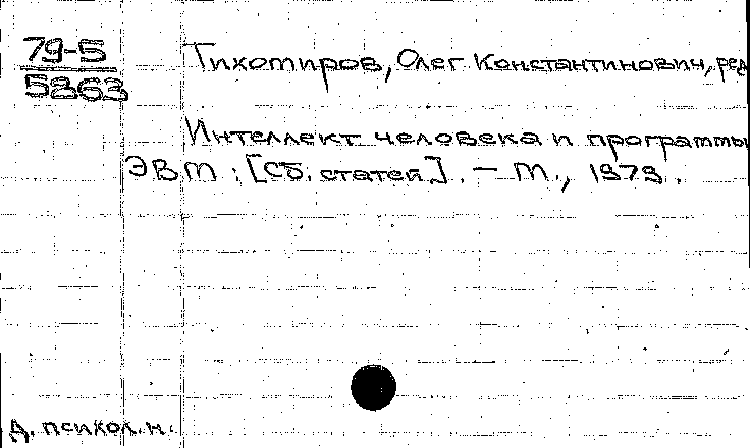 79-5
5863
Тихомиров, Олег Константинович, ред
Интеллект человека и программы
ЭВМ: [Сб. статей]. — М., 1979.
Д. психол. н.